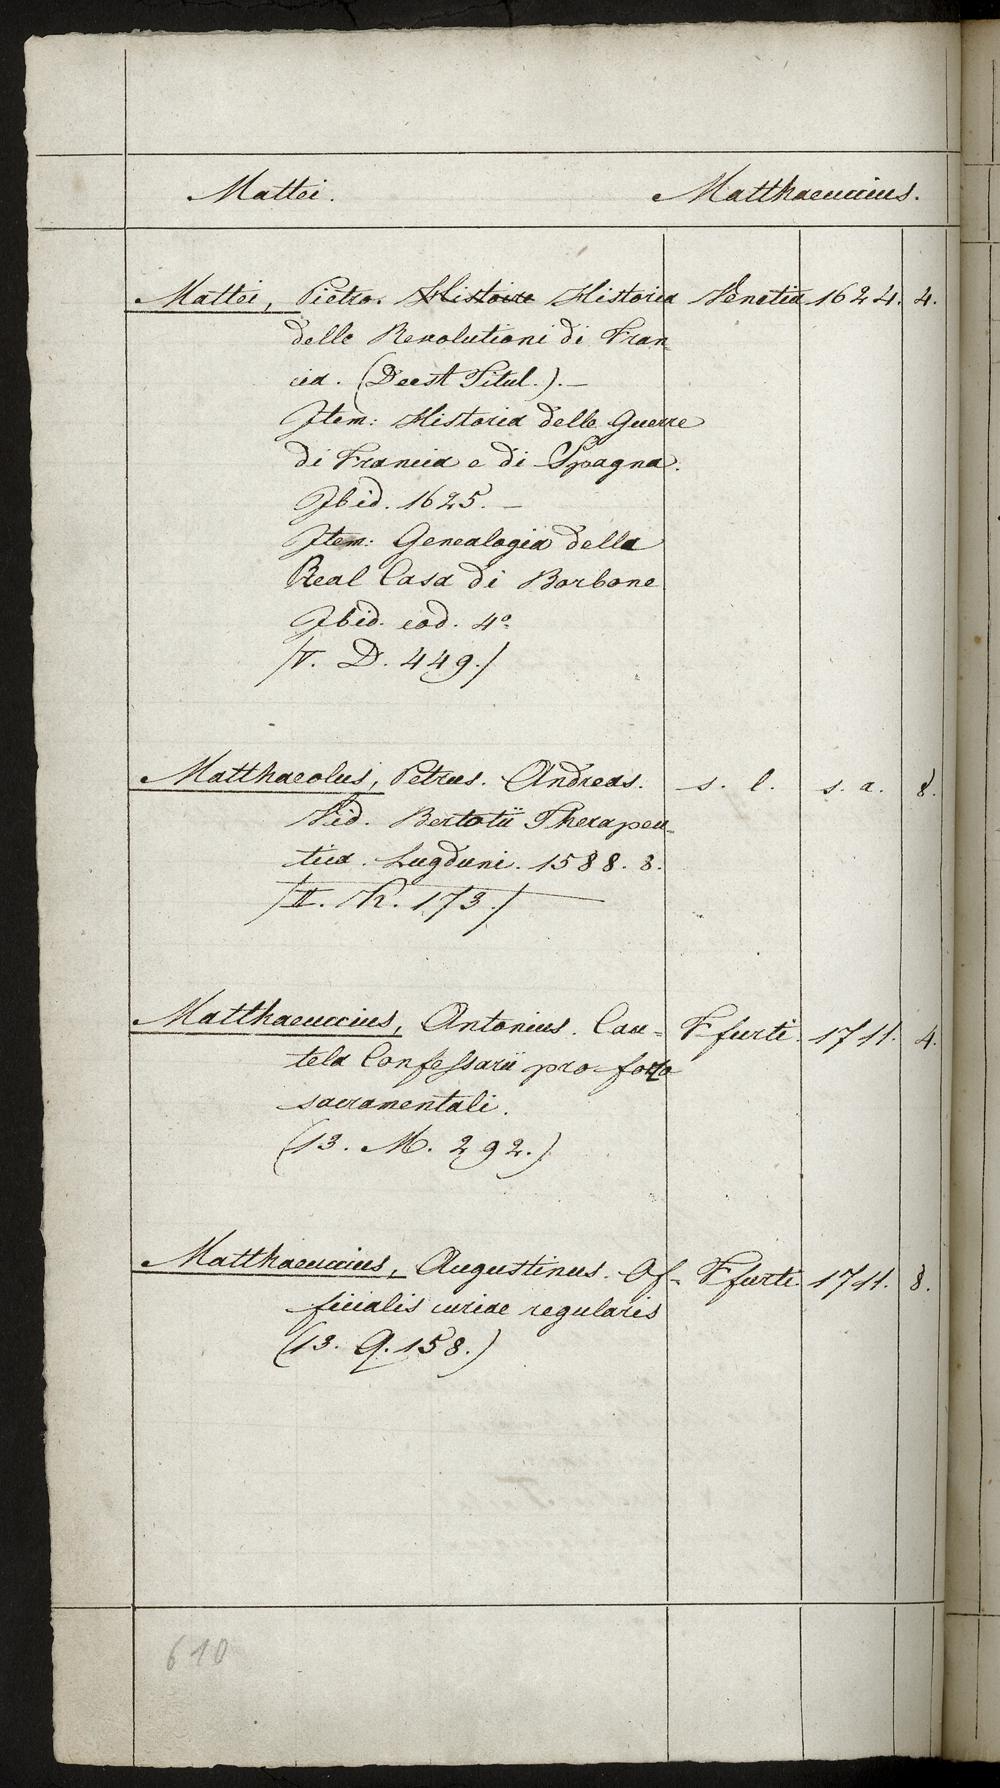 Mattei. Matthaeuccius.
Mattei, Pietro. Histoire Historia Venetia 1624. 4.
delle Revolutioni di Fran-
cia. (Deest Titul.). —
Item: Historia delle Guerre
di Francia e di Spagna.
Ibid. 1625. —
Item: Genealogia della
Real Casa di Borbone
Ibid. eod. 4º
/V. D. 449./
Matthaeolus, Petrus. Andreas. s. l. s. a. 8.
Vid. Bertotii Therapeu-
tica. Lugduni. 1588. 8.
/II. K. 173./
Matthaeuccius, Antonius. Cau- Ffurti. 1711. 4.
tela Confessarii pro foro
sacramentali.
(13. M. 292.)
Matthaeuccius, Augustinus. Of- Ffurti. 1711. 8.
ficialis curiae regularis
(13. Q. 158.)
610